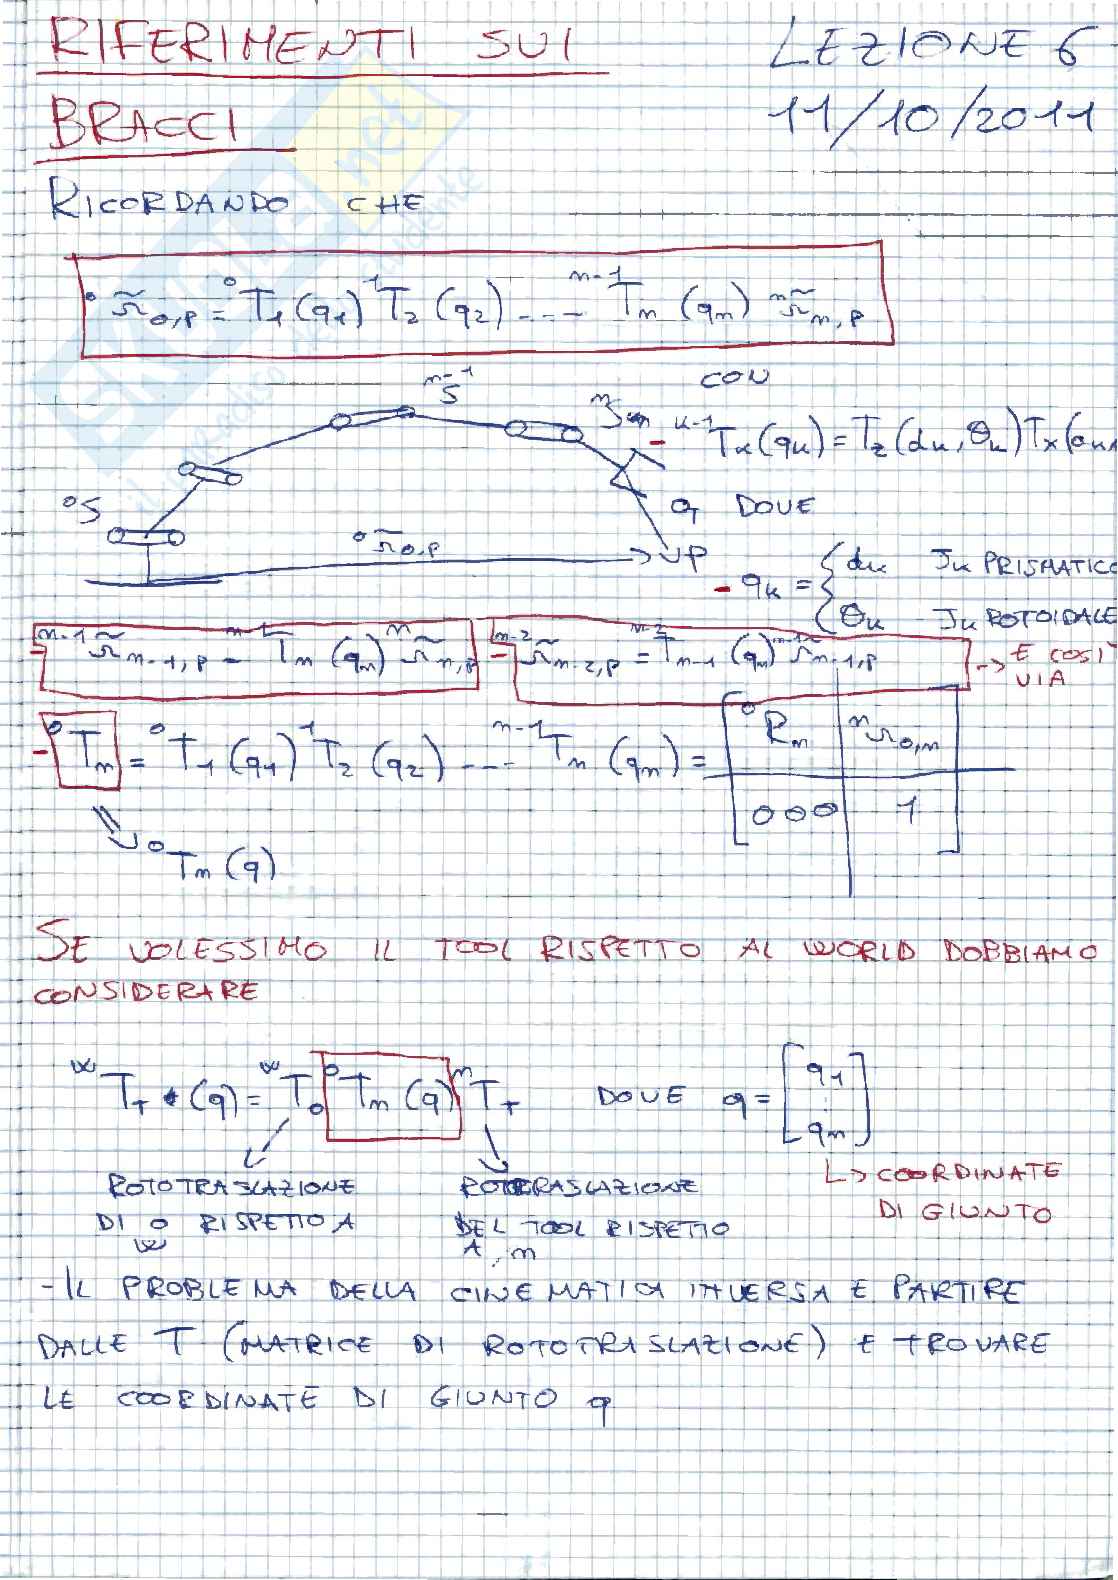 RIFERIMENTI SUI LEZIONE 6
BRACCI 11/10/2011
RICORDANDO CHE
⁰r̃₀,P = ⁰T₁(q₁) ¹T₂(q₂) ---- ⁿ⁻¹Tₙ(qₙ) ⁿr̃ₙ,P
CON
ⁿ⁻¹S
ᵏ⁻¹Tₖ(qₖ) = T_z(dₖ, θₖ) Tₓ(
⁰S
O_T DOVE
⁰r̃₀,P
P
- qₖ = { dₖ Jₖ PRISMATICO
θₖ - Jₖ ROTOIDALE
- ⁿ⁻¹r̃ₙ₋₁,P = ⁿ⁻¹Tₙ(qₙ) ⁿr̃ₙ,P - ⁿ⁻²r̃ₙ₋₂,P = ⁿ⁻²Tₙ₋₁(qₙ) ⁿ⁻¹r̃ₙ₋₁,P -> E COSI'
VIA
- ⁰Tₙ = ⁰T₁(q₁) ¹T₂(q₂) ---- ⁿ⁻¹Tₙ(qₙ) = [ ⁰Rₙ | ⁿr₀,ₙ
000 | 1 ]
⁰Tₙ(q)
SE VOLESSIMO IL TOOL RISPETTO AL WORLD DOBBIAMO
CONSIDERARE
ʷT_T(q) = ʷT₀ ⁰Tₙ(q) ⁿT_T DOVE q = [ q₁ ⋮ qₙ ]
ROTOTRASLAZIONE
DI O RISPETTO A
W
ROTOTRASLAZIONE
DEL TOOL RISPETTO
A n
L> COORDINATE
DI GIUNTO
- IL PROBLEMA DELLA CINEMATICA INVERSA E PARTIRE
DALLE T (MATRICE DI ROTOTRASLAZIONE) E TROVARE
LE COORDINATE DI GIUNTO q